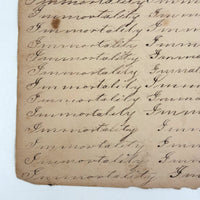 Immortality Immor
Immortality Immor
Immortality Immor
Immortality Immort
Immortality Immort
Immortality Immort
Immortality Immor
Immortality Immo
Immortality Immo
Immortality Immo
Immortality Imm
Immortality Imm